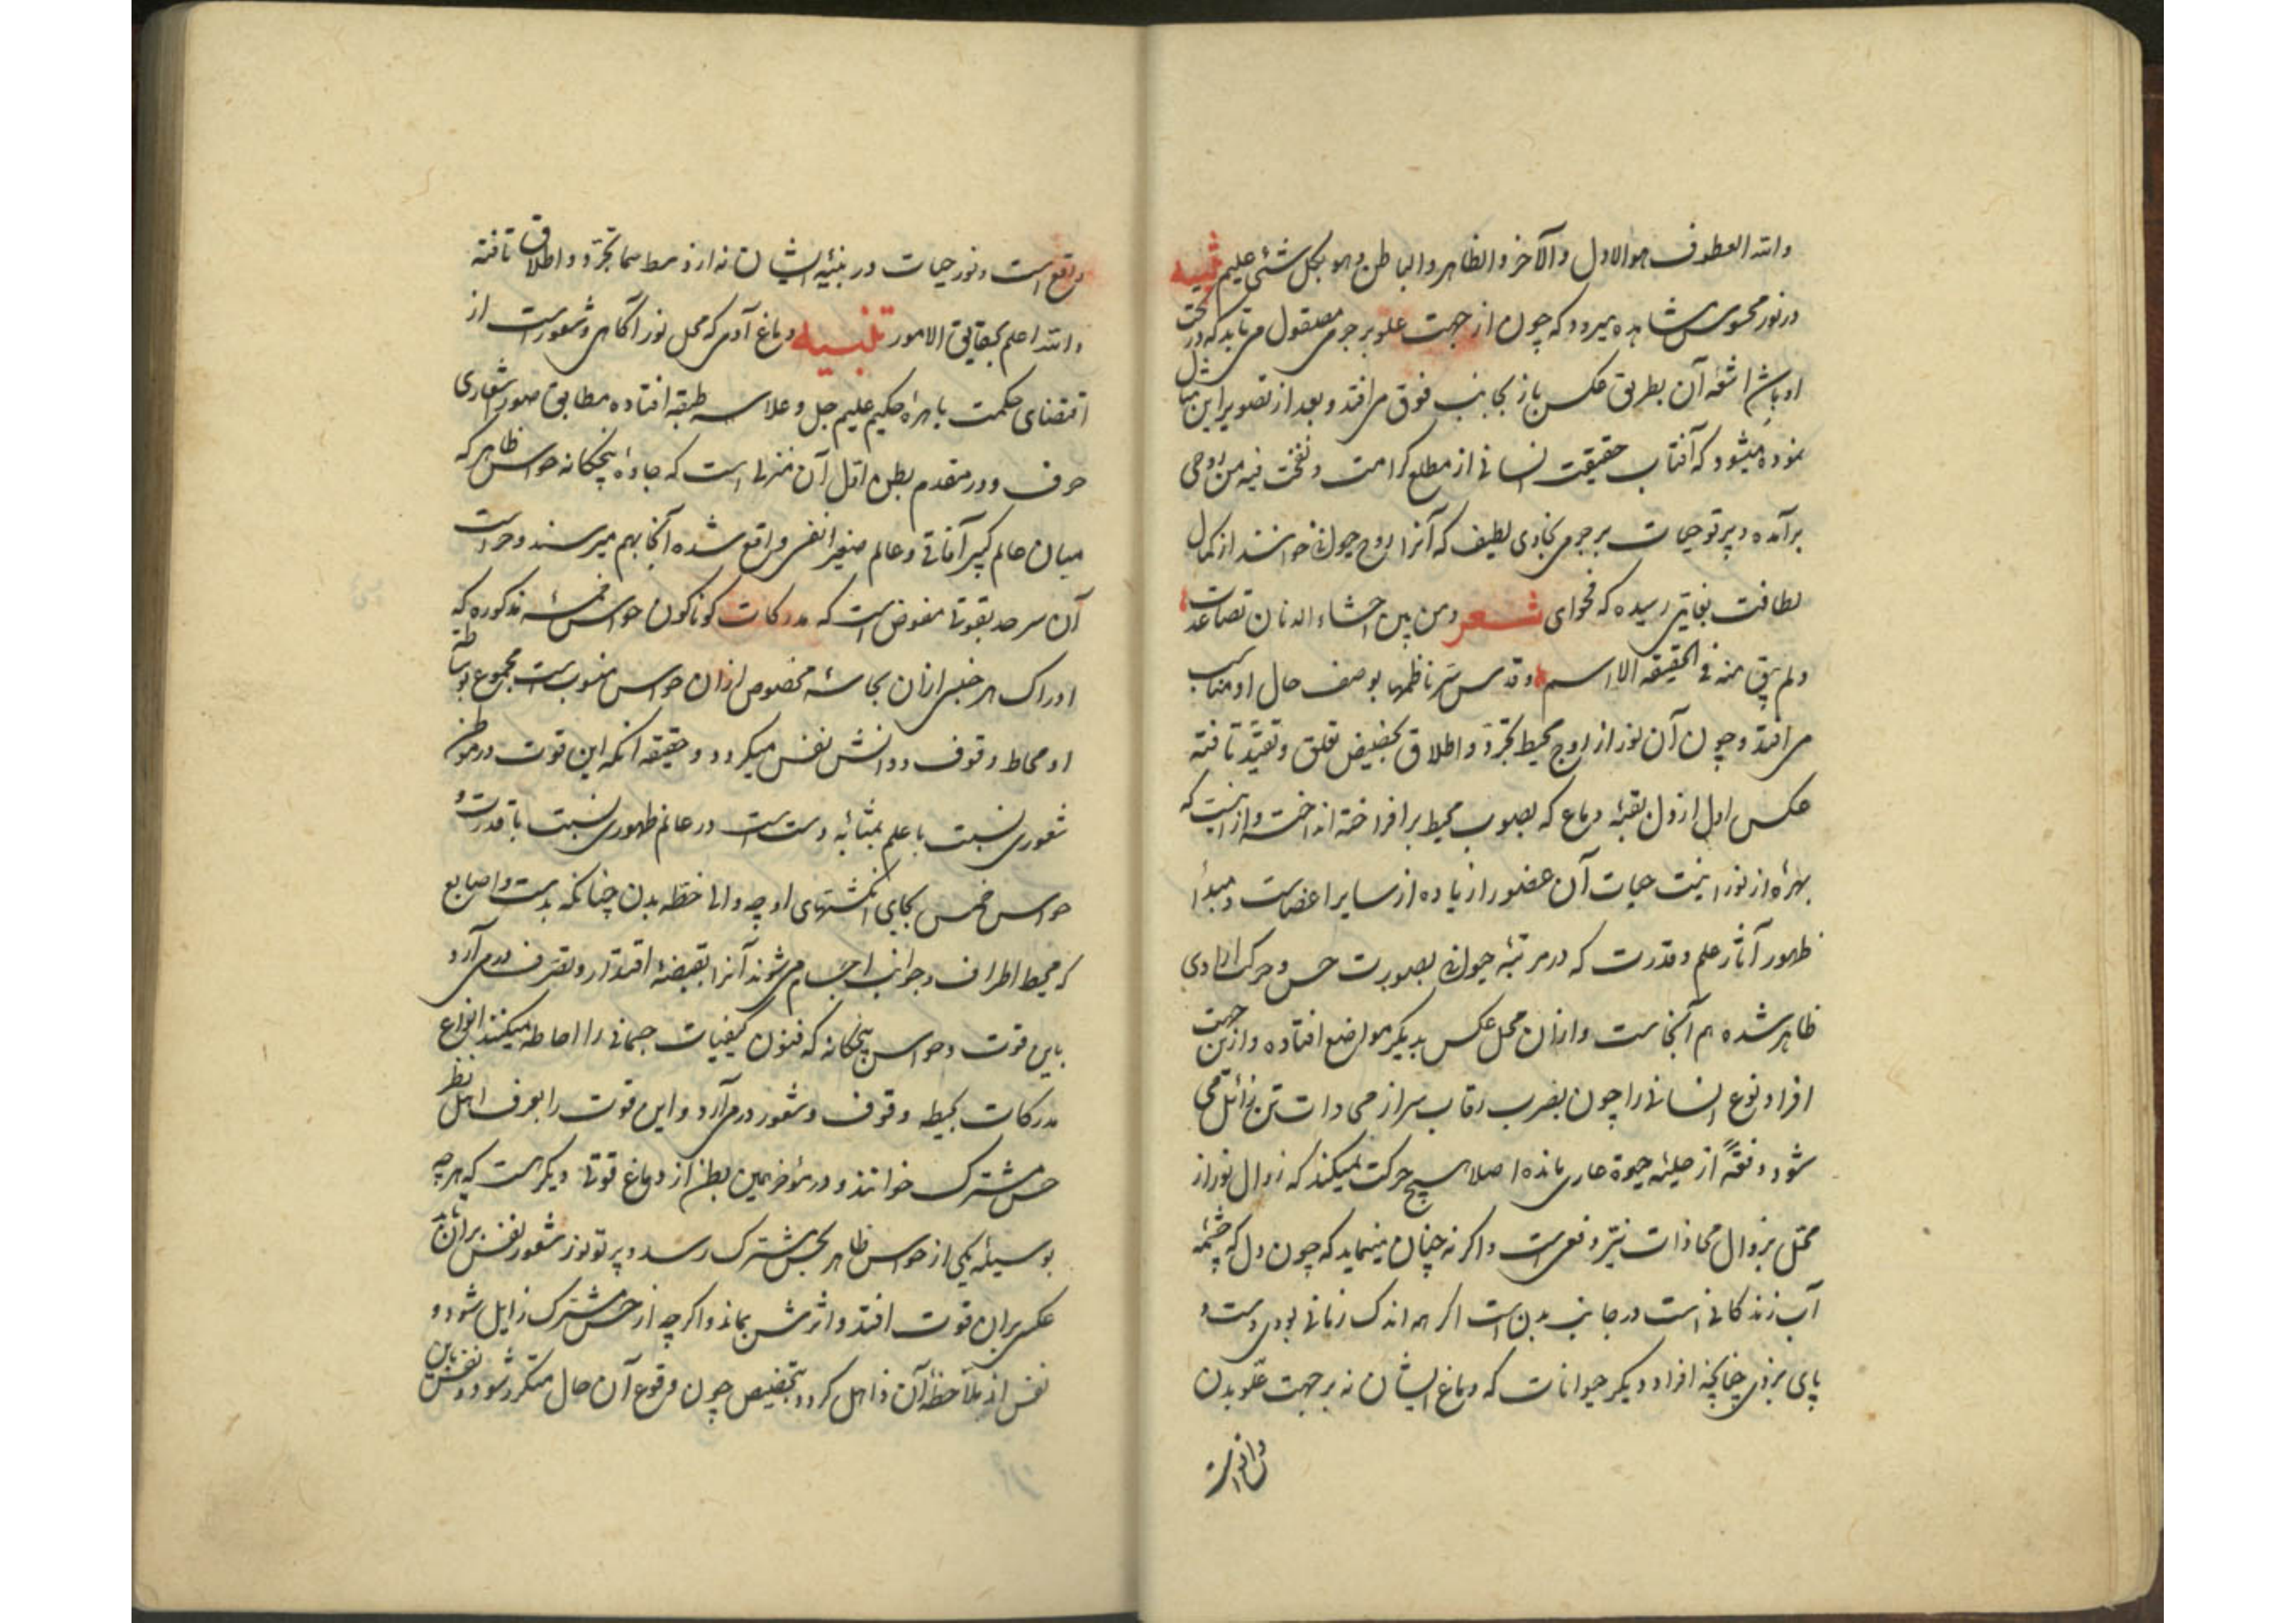 والله العطوف هو الاول والآخر والظاهر والباطن وهو بكل شئ عليم تنبیه
در نور محسوس مشاهده میرود که چون از جهت علو بر جرمی مصقول می تابد که در تحت
او باشد اشعه آن بطریق عکس باز بجانب فوق می افتد و بعد از تصویر این مثال
نموده میشود که آفتاب حقیقت انسانی از مطلع کرامت ونفخت فیه من روحی
برآمده و پرتو حیات بر جرمی بخاری لطیف که آنرا روح حیوانی خوانند از کمال
لطافت بغایتی رسیده که فحوای شعر ومن بین احشاء الدنان تصاعدت
ولم یبق منه فی الحقیقه الا اسم وقدس سر ناظمها بوصف حال او مناسب
می افتد و چون آن نور از اوج محیط تجرد و اطلاق بحضیض تعلق و تقید تافته
عکس اول از دل بقبه دماغ که بصوب محیط برافراخته انداخته و از اینست که
بهره از نورانیت حیات آن عضو را زیاده از سایر اعضاست و مبدأ
ظهور آثار علم و قدرت که در مرتبه حیوانی بصورت حس و حرکت ارادی
ظاهر شده هم آنجاست و ازان محل عکس بدیکر مواضع افتاده و ازین جهت
افراد نوع انسانی را چون بضرب رقاب سر از محاذات تن زائل می
شود دفعةً از حلیه حیوة عاری مانده اصلا هیچ حرکت نمیکند که زوال نور از
محل بزوال محاذات نیر دفعی است و اکر نه چنان مینماید که چون دل که چشمه
آب زندکانی است در جانب بدن است اکر هم اندک زمانی بودی دست و
پای بزدی چنانچه افراد دیکر حیوانات که دماغ ایشان نه بر جهت علو بدن
واقع است
واقع است و نور حیات در بنیه ایشان نه از وسط سماء تجرد و اطلاق تافته
والله اعلم بحقایق الامور تنبیه دماغ آدمی که محل نور آکاهی و شعور است از
اقتضای حکمت باهره حکیم علیم جل و علا سه طبقه افتاده مطابق صور اشعاری
حرف و در مقدم بطن اول آن منزلی است که جاده پنجکانه حواس ظاهر که
میان عالم کبیر آفاقی و عالم صغیر انفسی واقع شده آنجا بهم میرسند و حراست
آن سرحد بقوتی مفوض است که مدرکات کوناکون حواس خمسه مذکوره که
ادراک هر جنسی ازان بحاسه مخصوص ازان حواس منسوب است مجموع بوساطة
او محاط وقوف و دانش نفس میکردد و حقیقه آنکه این قوت در موطن
شعوری نسبت با علم بمثابه دست است در عالم ظهوری نسبت با قدرت و
حواس خمس بجای انکشتهای او چه والا حفظه بدن چنانکه بدست و اصابع
که محیط اطراف و جوانب اجسام می شوند آنرا بقبضه اقتدار و تصرف درمی آرد
باین قوت و حواس پنجکانه که فنون کیفیات جسمانی را احاطه میکنند انواع
مدرکات بحیطه وقوف و شعور درمی آرد و این قوت را بعرف اهل نظر
حس مشترک خوانند و در مؤخر همین بطن از دماغ قوتی دیکر هست که هرچه
بوسیله یکی از حواس ظاهر بحس مشترک رسد و پرتو نور شعور نفس بران تابد
عکسی بران قوت افتد و اثرش بماند و اکرچه از حس مشترک زایل شود و
نفس از ملاحظه آن ذاهل کردد بتخصیص چون وقوع آن حال متکرر شود و نفس باین